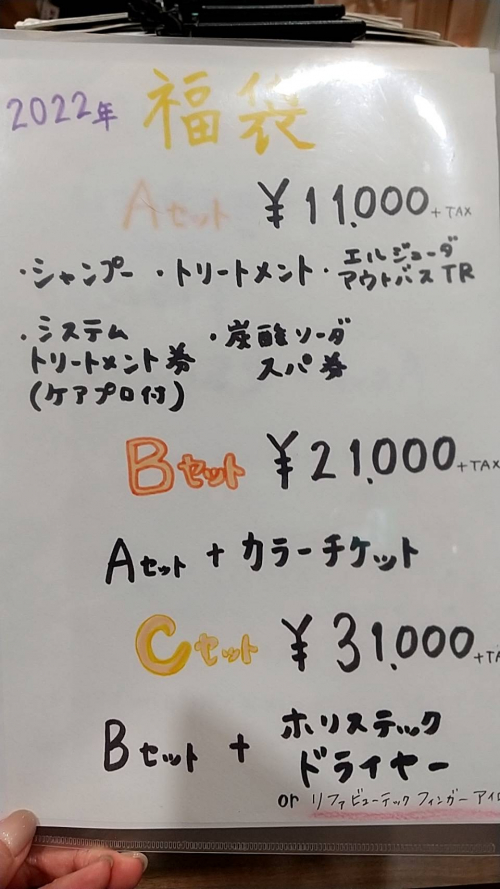 2022年 福袋
Aセット ¥11,000 + TAX
・シャンプー ・トリートメント ・エルジューダ
アウトバスTR
・システム
トリートメント券
(ケアプロ付)
・炭酸ソーダ
スパ券
Bセット ¥21,000 + TAX
Aセット + カラーチケット
Cセット ¥31,000 + TA
Bセット + ホリステック
ドライヤー
or リファビューテック フィンガーアイロ